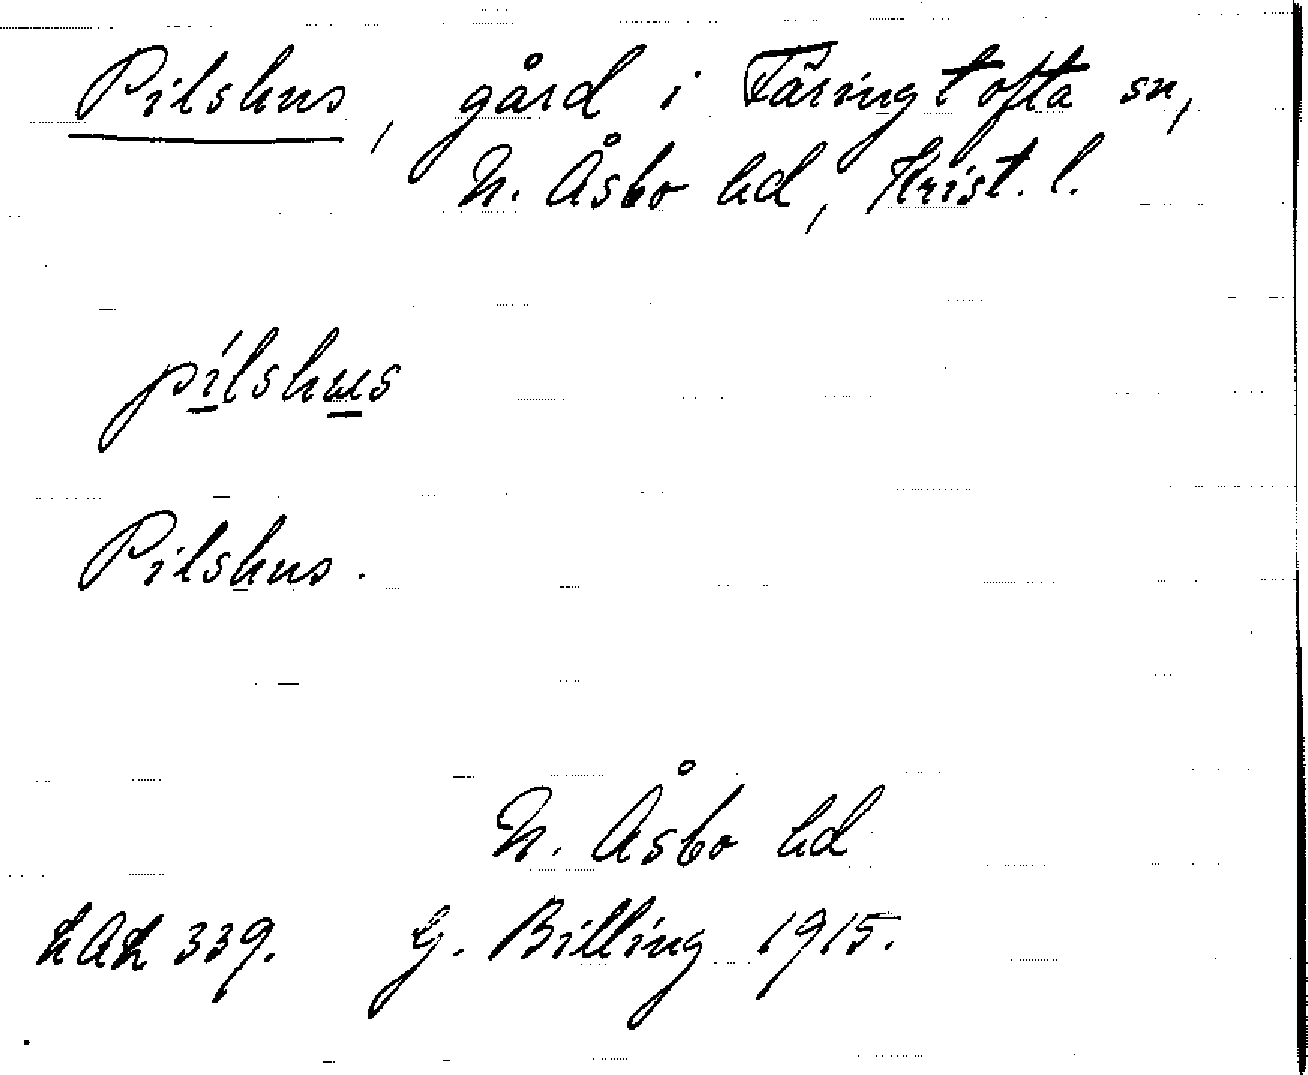 Pilshus, gård i Färingtofta sn,
N. Åsbo hd, Krist. l.
pilshus
Pilshus.
N. Åsbo hd
LAL 339. G. Billing 1915.